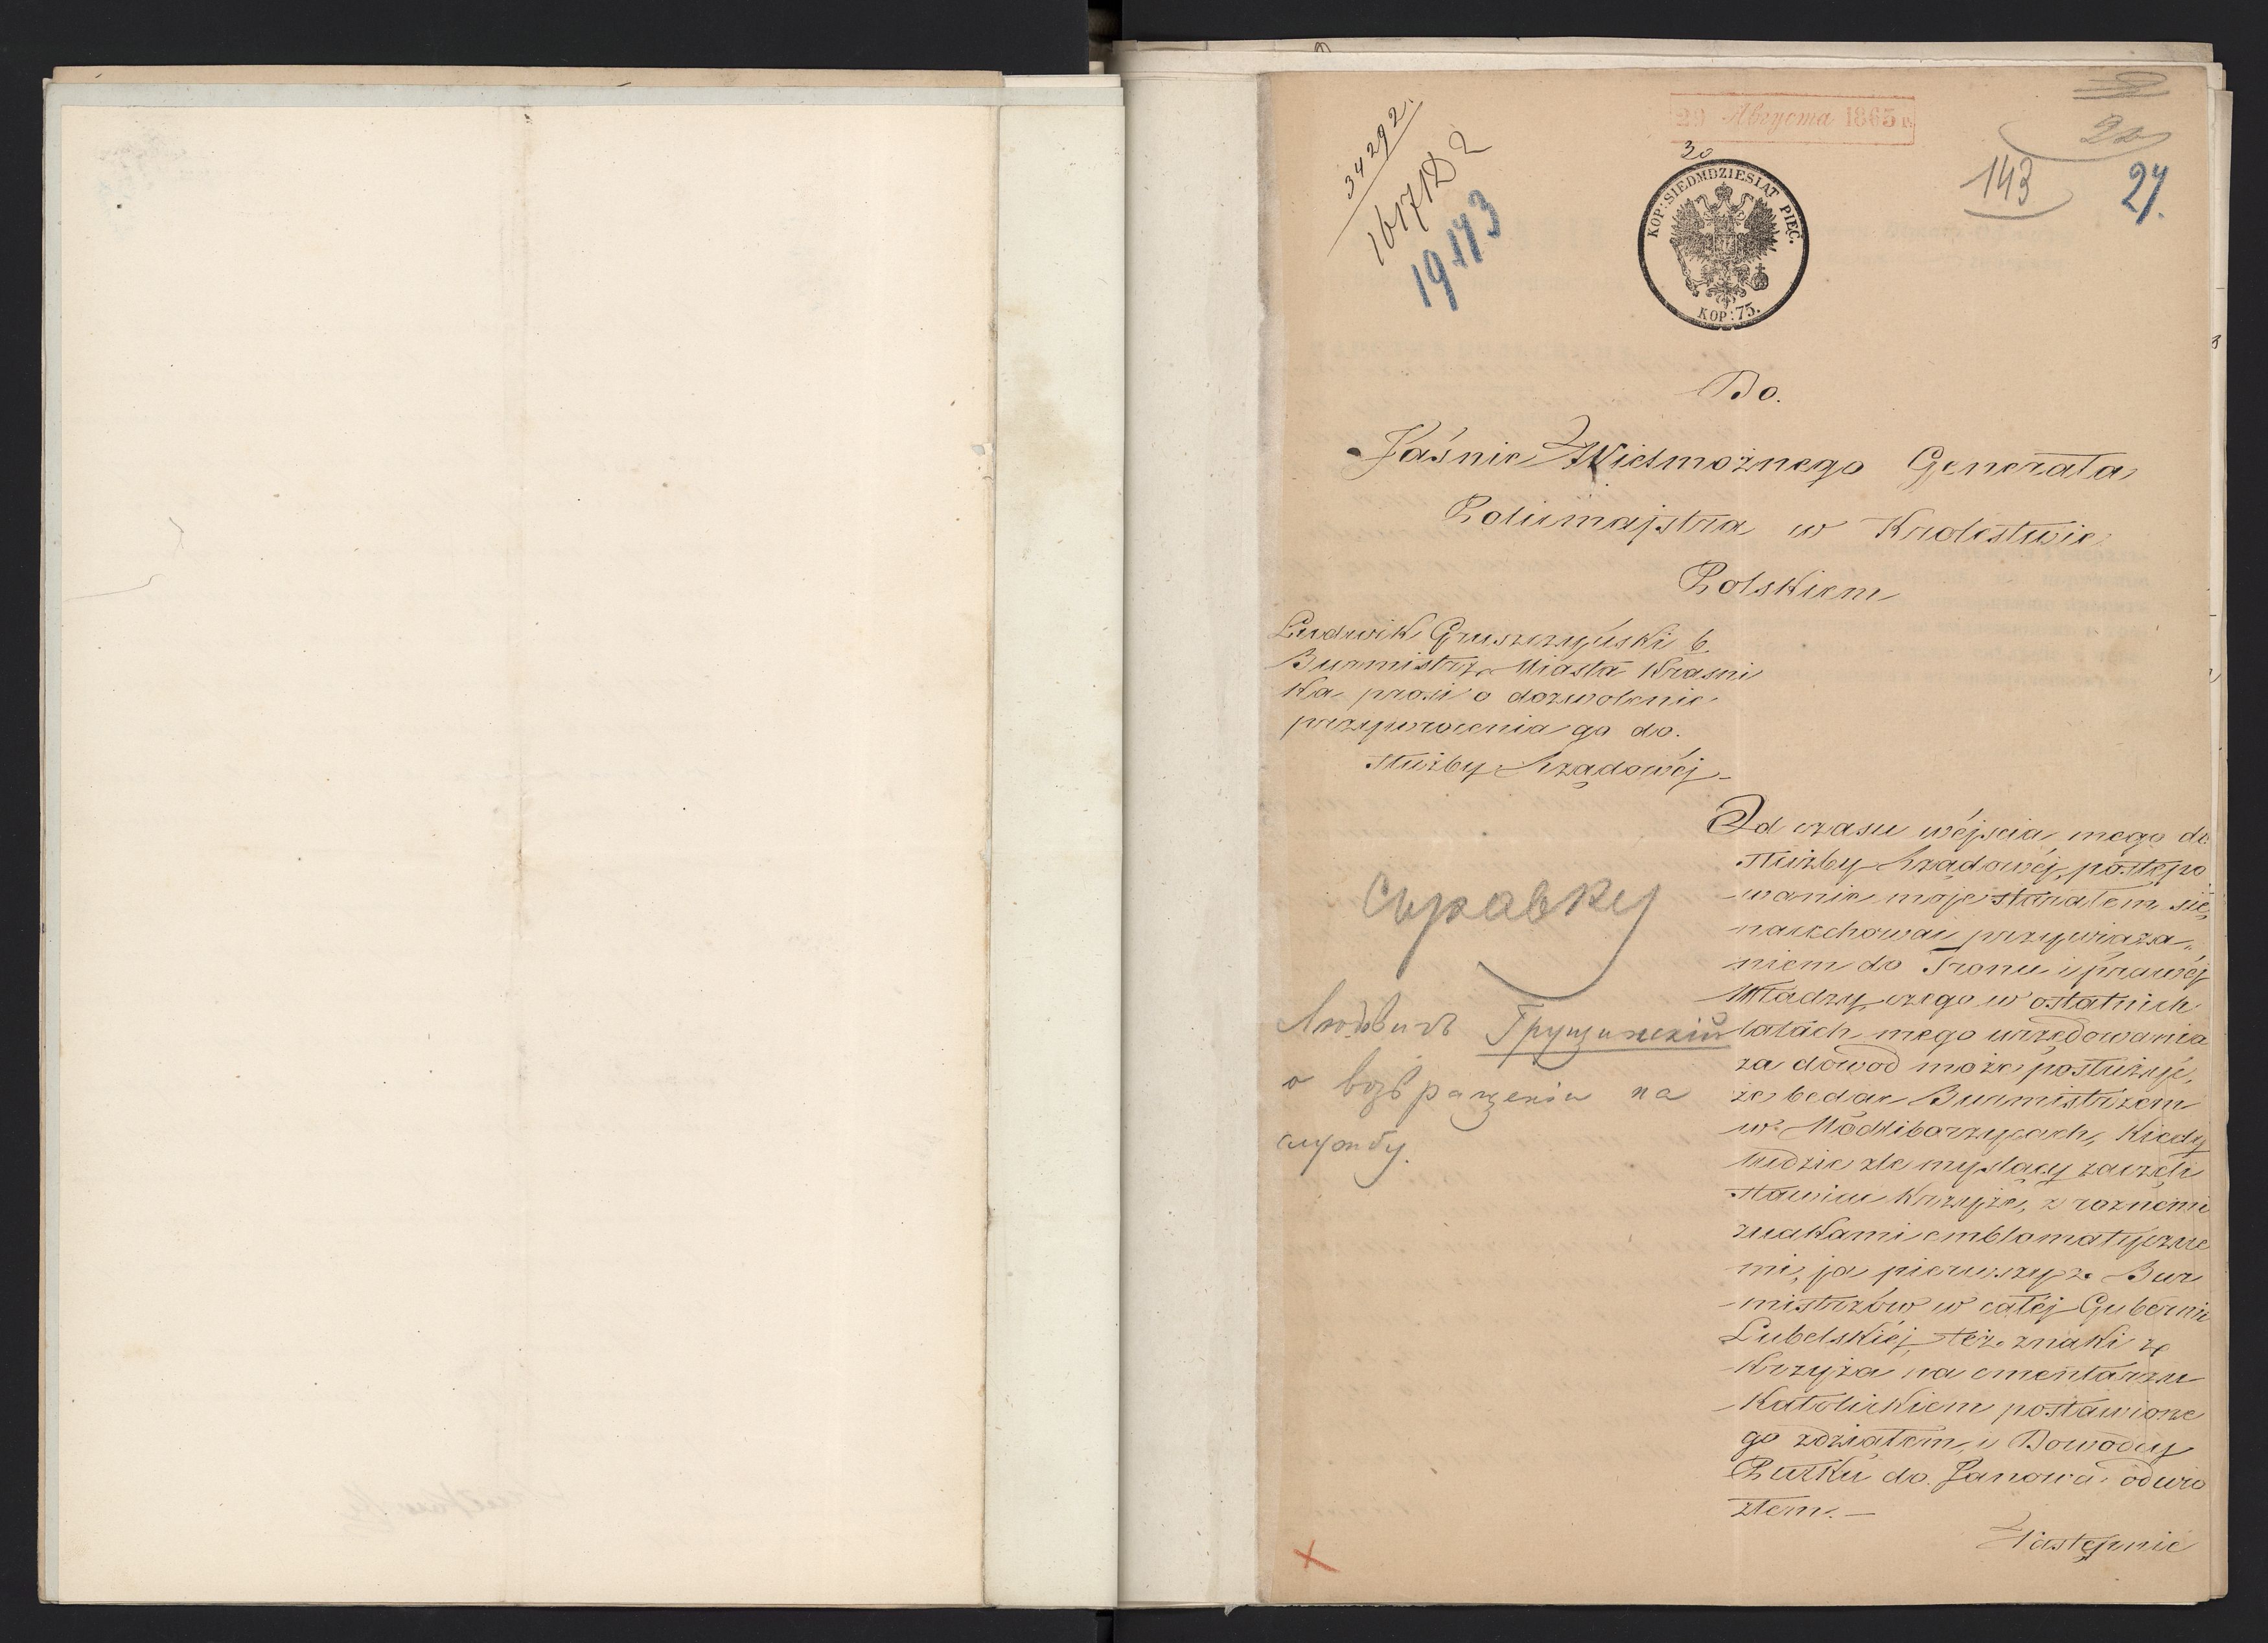 34292.
161712
19143
29 Августа 1865 г.
30
143
27.
KOP: SIEDMDZIESIAT PIĘĆ.
KOP: 75.
Do.
Jaśnie Wielmożnego Generała
Policmajstra w Krolestwie
Polskiem
Ludwik Gruszczyński b.
Burmistrz Miasta Kraśni
ka prosi o dozwolenie
przywrocenia go do.
służby Rządowéj –
Od czasu wéjscia mego do
służby Rządowéj, postępo
wanie moje starałem się
nacechować przywiąza„
niem do Tronu i prawéj
Władzy, czego w ostatnich
latach mego urzędowania
za dowod może posłużyć,
że będąc Burmistrzem
w Modliborzycach, kiedy
ludzie źle myslący zaczęli
stawiać krzyże, z rożnemi
znakami emblamatyczne
mi, ja pierwszy z Bur
mistrzów w całéj Gubernii
Lubelskiéj też znaki z
krzyża na cmentarzu
Katolickiem postawione
go zdziałem, i Dowodcy
Pułku do Janowa odwio
złem. –
Następnie
Справку
Людвигъ Грущинскій
о возвращеніи на
службу.